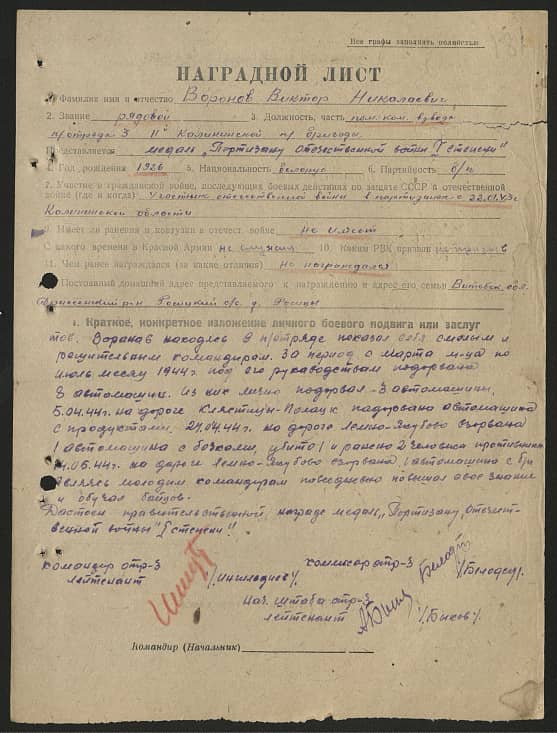 Все графы заполнять полностью
НАГРАДНОЙ ЛИСТ
1. Фамилия имя и отчество Воронов Виктор Николаевич
2. Звание рядовой 3. Должность, часть пом. ком. взвода
п/отряда 3 11й Калининской п/бригады
Представляется медаль „Портизану отечественной войны I степени"
4. Год рождения 1926 5. Национальность белорус 6. Партийность б/п
7. Участие в гражданской войне, последующих боевых действиях по защите СССР и отечественной
войне (где и когда) Участник отечественной войны в партизанах с
Калининской области
9. Имеет ли ранения и контузии в отечест. войне не имеет
С какого времени в Красной Армии не служил 10. Каким РВК призван
11. Чем ранее награждался (за какие отличия) не награждался
Постоянный домашний адрес представляемого к награждению и адрес его семьи Витебск. обл.
р-н с/с д.
1. Краткое, конкретное изложение личного боевого подвига или заслуг
тов. Воронов находясь в п/отряде показал себя смелым и
решительным командиром. За период с марта м-ца по
июль месяц 1944 г. под его руководством подорвано
8 автомашин. Из них лично подорвал - 3 автомашины.
5.04.44г. на дороге Клястицы-Полоцк подорвана автомашина
с продуктами. 24.04.44г. на дороге Лемно-Якубово взорвана
1 автомашина с бочками, убито 1 и ранено 2 человека противника
.06.44г. на дороге Лемно-Якубово взорвана 1 автомашина с
Являясь молодым командирам повседневно повышал свое знание
и обучал бойцов.
Достоен правительственной награде медаль „Портизану Отечест-
венной войны" I степени"!
командир отр-3 комиссар отр-3
лейтенант
Нач. штаба отр-3
лейтенант /Быков/.
Командир (Начальник)